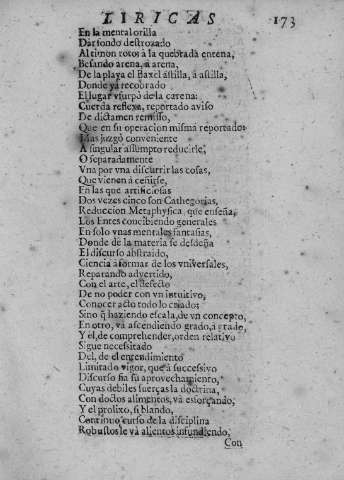 LIRICAS 173
En la mental orilla
Dar fondo destrozado
Al timon roto: à la quebrada entena,
Besando arena, à arena,
De la playa el baxel astilla, à astilla,
Donde yà recobrado
El lugar vsurpò de la carena:
Cuerda reflexa, reportado aviso
De dictamen remisso,
Que en su operacion misma reportado:
Mas juzgò conveniente
A singular assumpto reducirse,
O separadamente
Vna por vna discurrir las cosas,
Que vienen à ceñirse,
En las que artificiosas
Dos vezes cinco son Cathegorias,
Reduccion Metaphysica, que enseña,
Los Entes concibiendo generales
En solo vnas mentales fantasias,
Donde de la materia se desdeña
El discurso abstraido,
Ciencia à formar de los vniversales,
Reparando advertido,
Con el arte, el defecto
De no poder con vn intuitivo,
Conocer acto todo lo criado:
Sino q haziendo escala, de vn concepto,
En otro, và ascendiendo grado, à grado,
Y el, de comprehender, orden relativo
Sigue necessitado
Del, de el entendimiento
Limitado vigor, que à successivo
Discurso fia su aprovechamiento,
Cuyas debiles fuerças la doctrina,
Con doctos alimentos, và esforçando,
Y el prolixo, si blando,
Continuo curso de la disciplina
Robustos le và alientos infundiendo,
Con